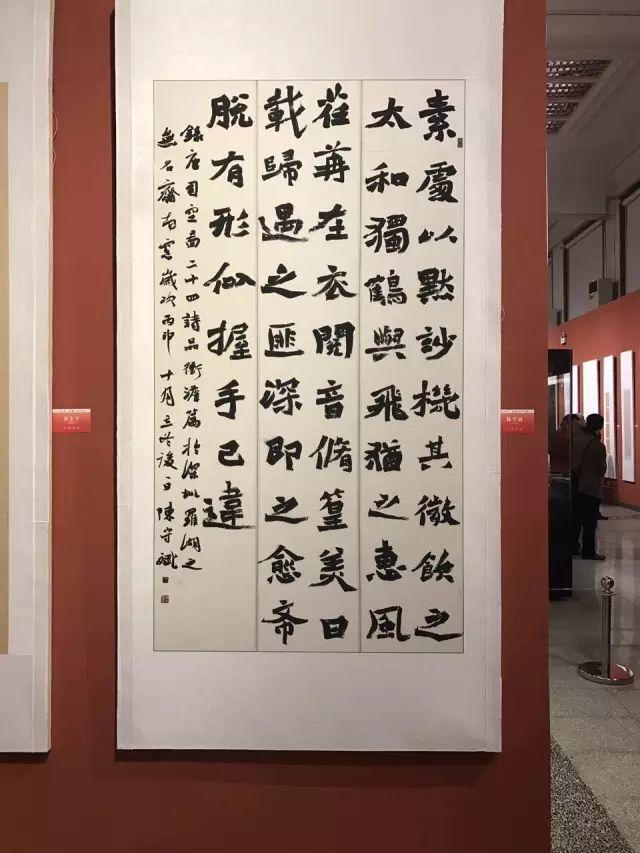 素處以默玅機其微飲之
太和獨鶴與飛猶之惠風
荏苒在衣閱音脩篁美曰
載歸遇之匪深即之愈希
脫有形似握手已違
錄唐司空圖二十四詩品衝澹篇於深圳羅湖之
無名齋南窗歲次丙申十月立冬後陳守斌
陈守斌